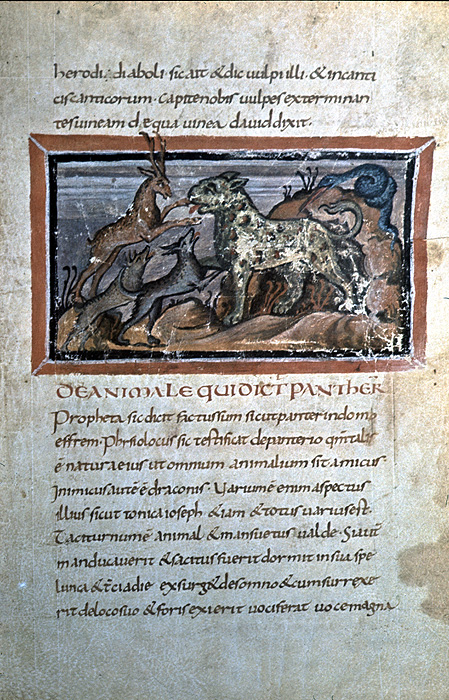 herodi, diaboli · sicait & dic vulpi illi · & incanti
cis canticorum · capite nobis vulpes exterminan
tes vineam de qua vinea david dixit ·
DE ANIMALE QUI DICT PANTHER
Propheta sic dicit factus sum sicut panter in domo
effrem · Phisiolocus sic testificat de panterio qm talis
ē natura eius ut omnium animalium sit amicus
inimicus autē ē draconis · Varium ē enim aspectus
illius sicut tonica ioseph & iam & totus varius est ·
Taciturnum ē animal & mansuetus valde · Si aut
manducaverit & saciatus fuerit dormit in sua spe
lunca & t̄cia die exsurg& de somno & cum surrexe
rit de loco suo & foris exierit vociferat voce magna